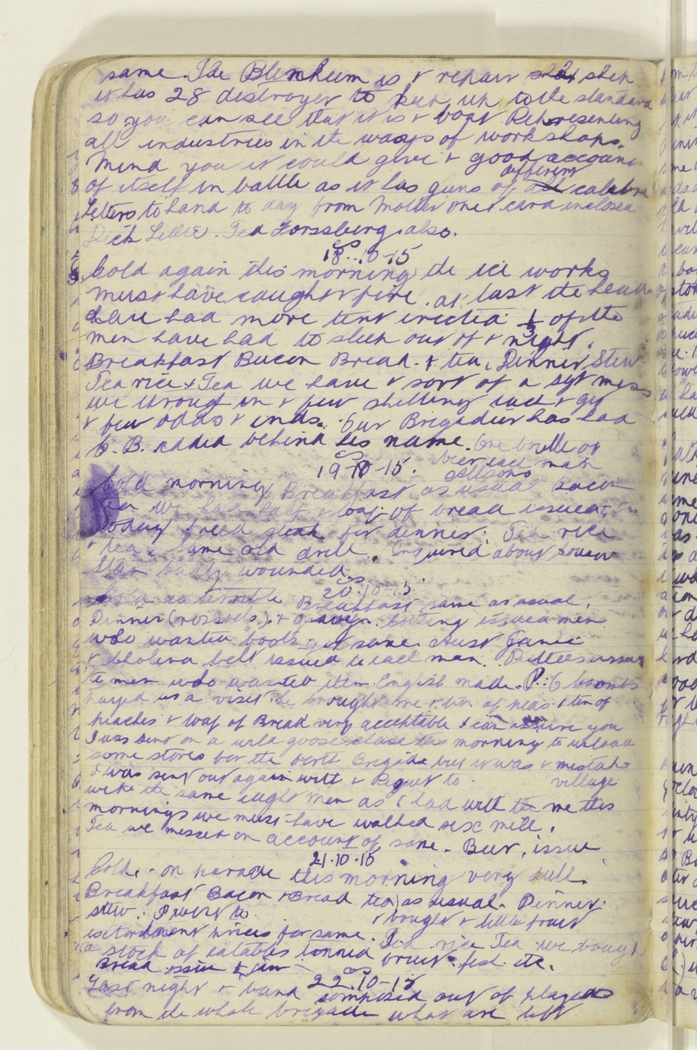 same. The Blenheim is & repair ship
it has 28 destroyer to keep up to the standard
so you can see that it is & boat Representing
all industries in the ways of workshops.
Mind you it could give & good account
of itself in battle as it has guns of different calabre
Letters to hand to day from Mother one & card inclosed
Letter. Ted Forssberg also.
18.10.15
Cold again this morning the ice works
must have caught & fire. at last the heads
have had more tent erected ½ of the
men have had to sleep out of & night.
Breakfast Bacon Bread & tea, Dinner Stew
Tea rice & Tea we have & sort of a Sgt mess
we throug in & few shilling each & get
& few odds & ends. Our Brigadier has had
C.B. added behind his name. One bottle of
beer each man
19-10-15.
Cold morning Breakfast as usual
we loaf of bread issued
today fried steak for dinner. Tea rice
& tea same old drill. Enquired about
badly wounded
20.10.15
Breakfast same as usual.
Dinner (rissols) & gravy. issued men
who wanted boots got same. Tunic
& Cholera belt issued to each man. Puttees issued
to men who wanted them English made. P. G
payed us a visit he brought me & tin of peas & tin of
peaches & loaf of Bread very acceptable I can assure you
I was sent on a wild goose chase this morning to unload
some stores for the Brigade but it was & mistake
I was sent out again with & Piquet to village
with the same eight men as I had with me this
mornings we must have walked six mile.
Tea we missed on account of same. Beer, issue
21.10.15
Cold. on parade this morning very dull.
Breakfast Bacon & Bread tea) as usual. Dinner
stew. I went to & bought & little fruit
prices for same. Tea rice Tea we bough
a stock of eatables tinned fruit fish etc.
Bread issue & jam
22.10-15
Last night & band composed out of players
from the whole brigade what are left